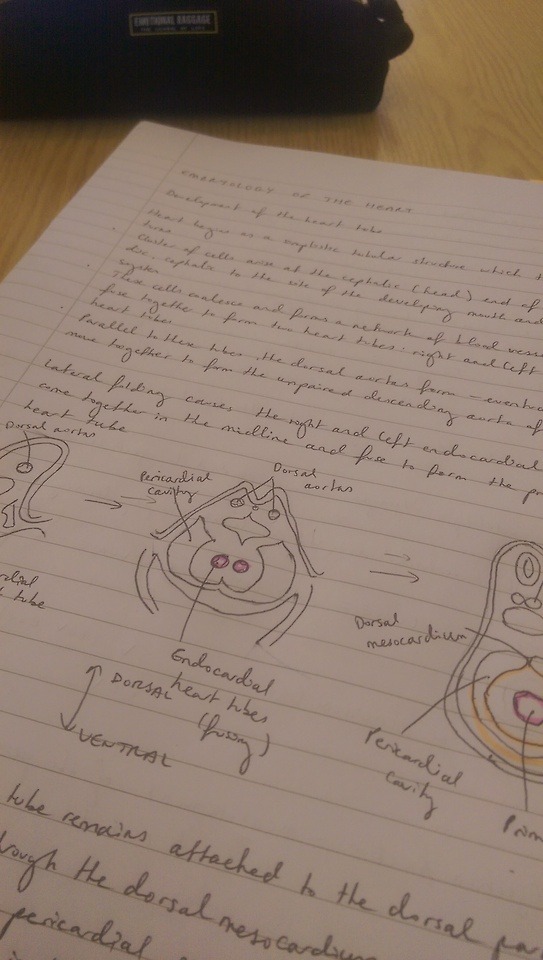 EMOTIONAL BAGGAGE
EMBRYOLOGY OF THE HEART
Development of the heart tube
Heart begins as a simplistic tubular structure which t
turns
Cluster of cells arise at the cephalic (head) end of
disc, cephalic to the site of the developing mouth and
system
These cells coalesce and forms a network of blood vesse
fuse together to form two heart tubes: right and left
heart tubes
Parallel to these tubes, the dorsal aortas form - eventua
move together to form the unpaired descending aorta of
Lateral folding causes the right and left endocardial
come together in the midline and fuse to form the pr
heart tube
Dorsal aortas
Pericardial
cavity
Dorsal
aortas
rdial
t tube
Endocardial
heart tubes
(fusing)
DORSAL
VENTRAL
Dorsal
mesocardium
Pericardial
cavity
Prim
tube remains attached to the dorsal par
rough the dorsal mesocardium
pericardial